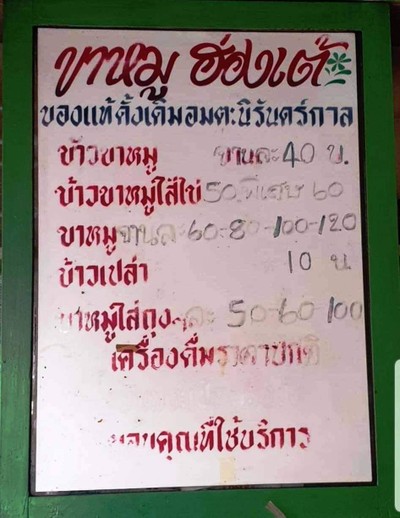 ขาหมู ฮ่องเต้
ของแท้ดั้งเดิมอมตะนิรันดร์กาล
ข้าวขาหมู จานละ 40 บ.
ข้าวขาหมูใส่ไข่ 50 พิเศษ 60
ขาหมูจานละ 60-80-100-120
ข้าวเปล่า 10 บ.
ขาหมูใส่ถุงละ 50-60-100
เครื่องดื่มราคาปกติ
ขอบคุณที่ใช้บริการ